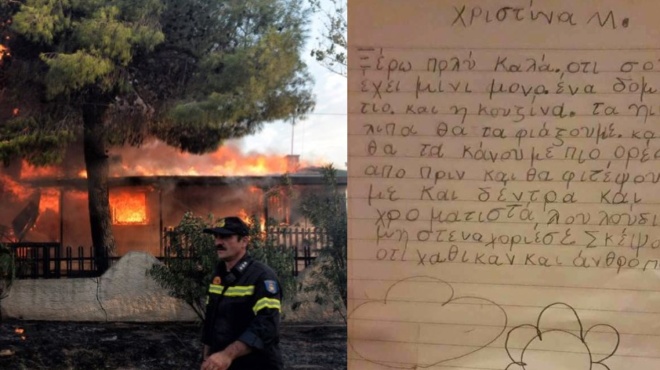 Χριστίνα Μ.
Ξέρω πρλύ καλά. ότι σο
έχει μινι μονρ. ένα δομ
τιο. και η κουζίνα. τα ηι
λιπα θα τα φιάξουμε. κα
θα τα κάνουμε πιο ορέ
απο πριν και θα φιτέψου
με και δέντρα και
χρο ματιστά λου λουδι
μη στεναχοριέσε. Σκέψ
οτι χαθικαν και άνθροπ